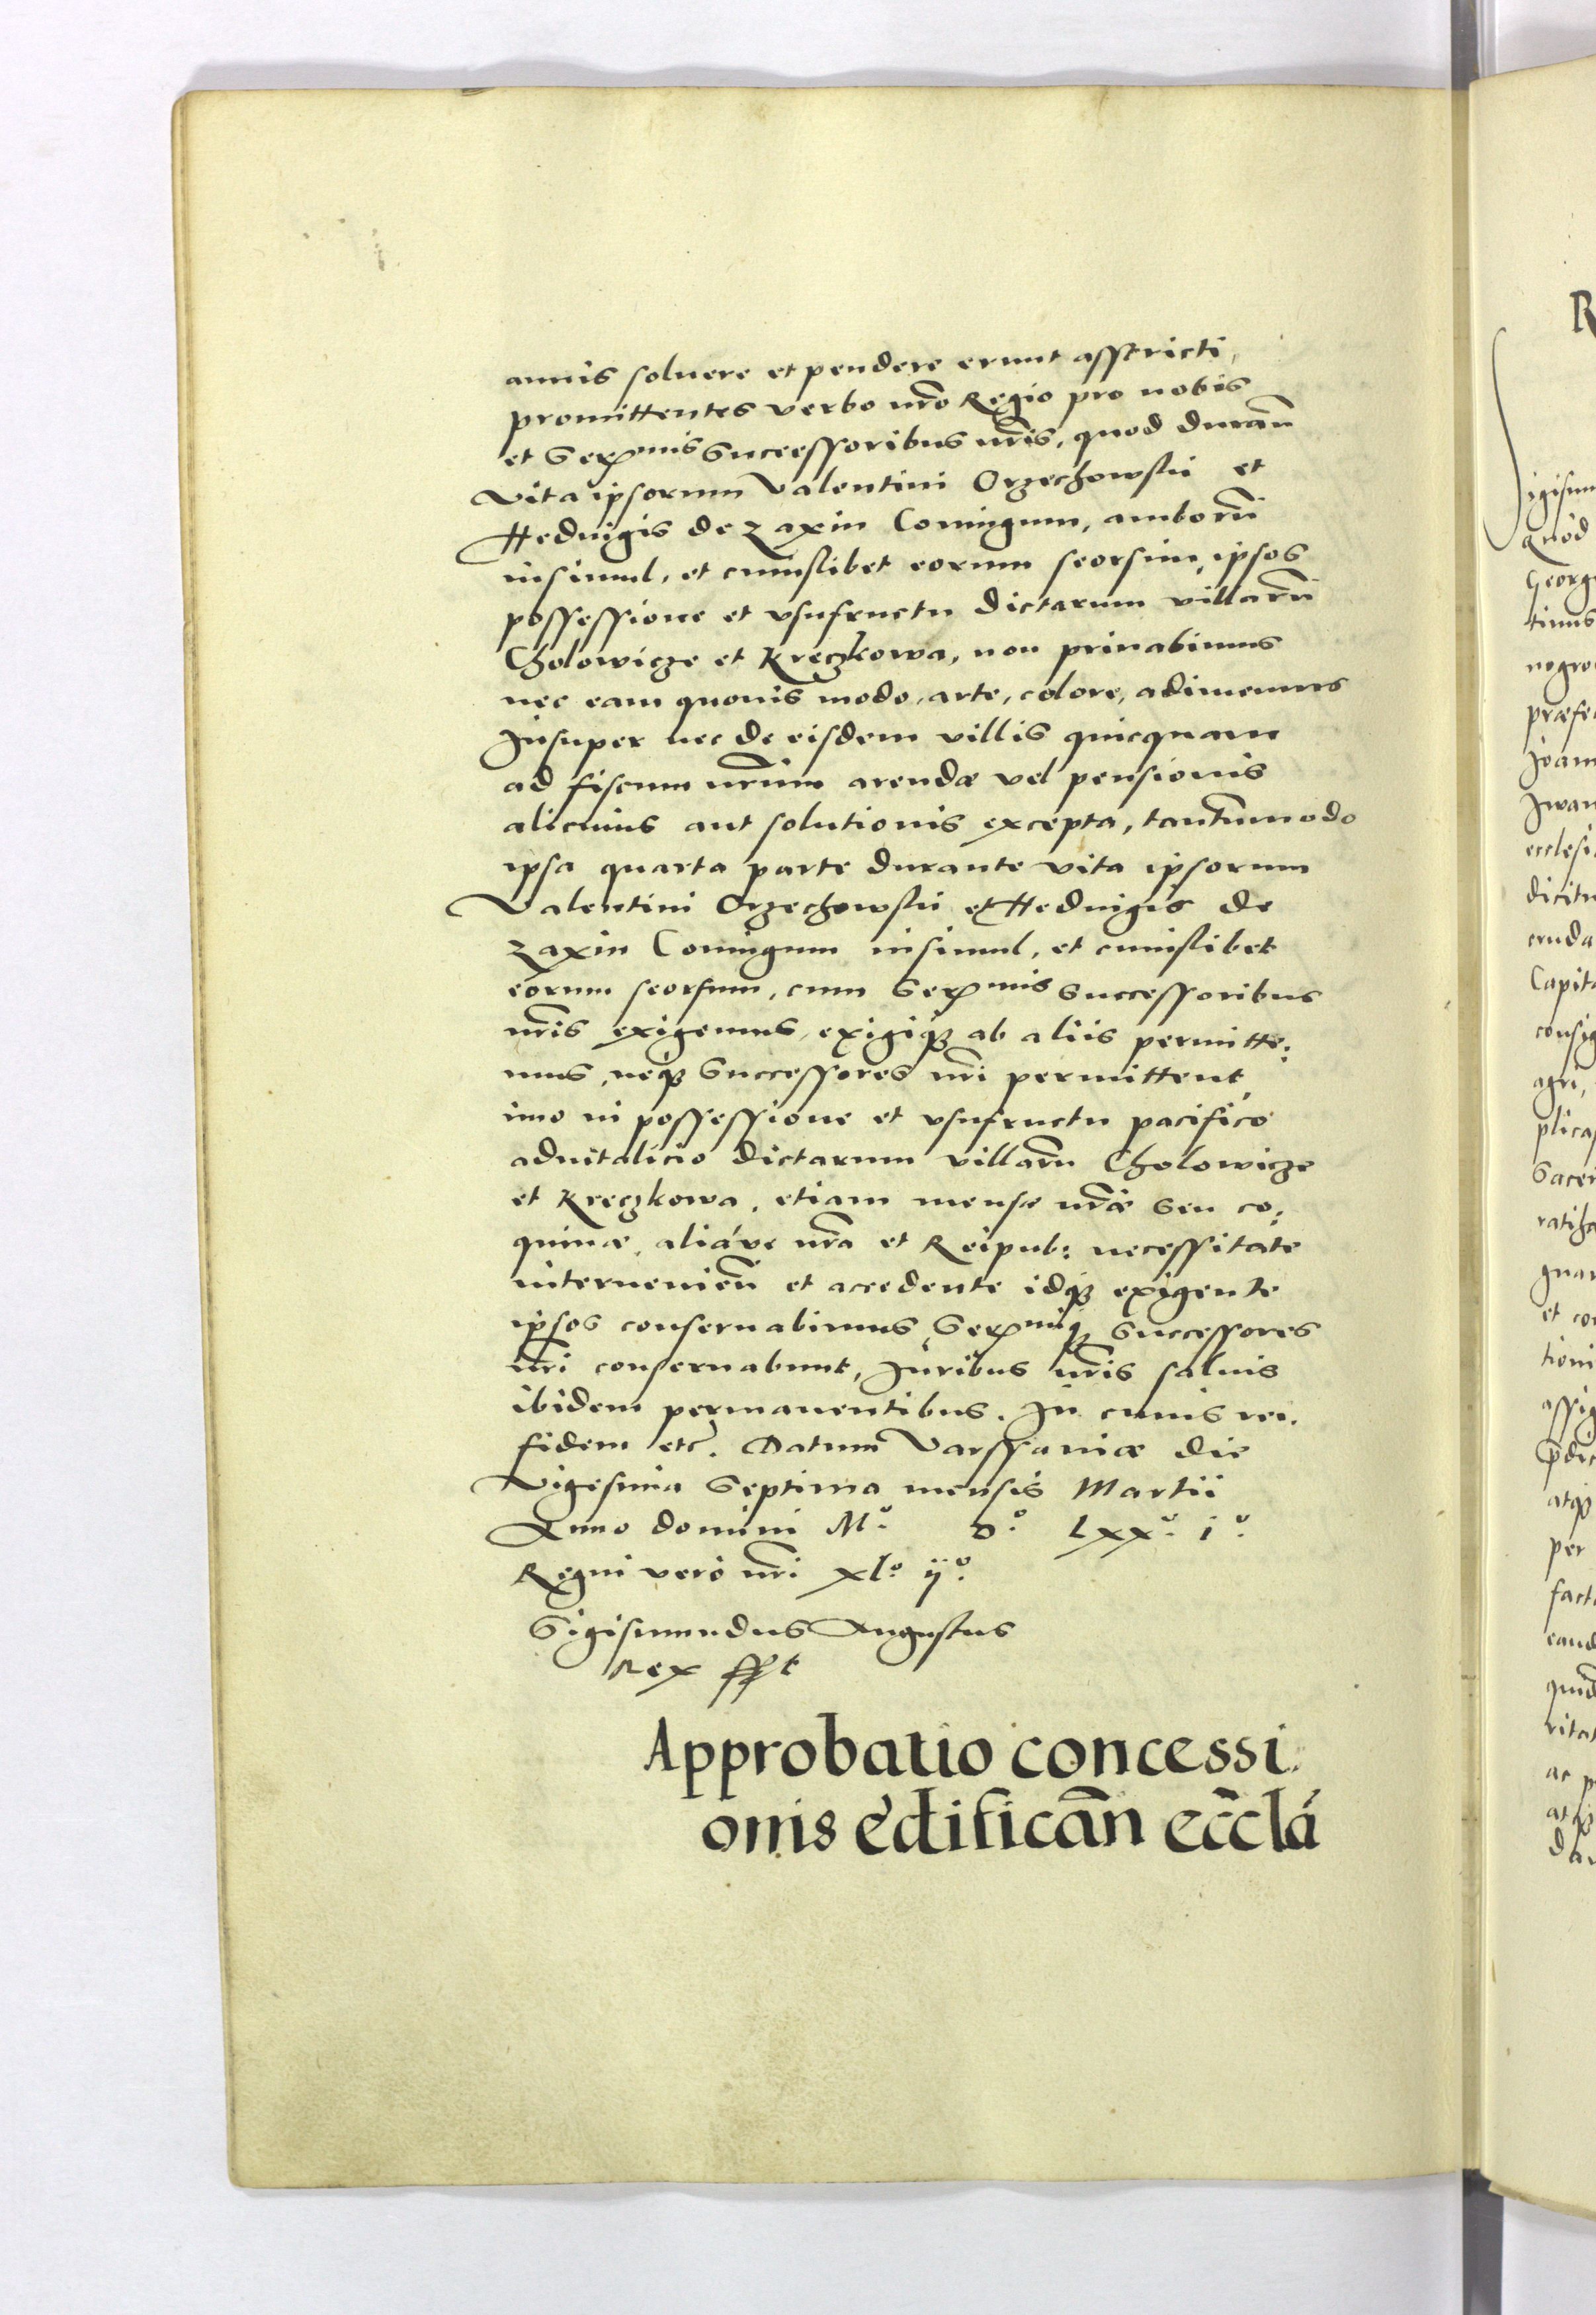 annis soluere et pendere erunt asstricti,
promittentes verbo nr̃o Regio pro nobis
et Serᵐⁱˢ Successoribus nr̃is, quod durañ
vita ipsorum Valentini Orzechowskii et
Heduigis de Zaxin Coniugum, amborũ
insimul, et cuiuslibet eorum seorsim, ipsos
possessione et vsufructu dictarum villarũ
Cholowicze et Kreczkowa, non priuabimus
nec eam quouis modo, arte, colore, adimemus
Insuper nec de eisdem villis quicquam
ad fiscum nr̃um arendæ vel pensionis
alicuius aut solutionis excepta, tantũmmodo
ipsa quarta parte durante vita ipsorum
Valentini Orzechowskii et Heduigis de
Zaxin Coniugum insimul, et cuiuslibet
eorum seorsum, cum Serᵐⁱˢ Successoribus
nr̃is exigemus, exigiqꝫ ab aliis permitte:
mus, neqꝫ Successores nr̃i permittent,
imo in possessione et vsufructu pacifico
aduitalicio dictarum villarũ Cholowicze
et Kreczkowa, etiam mensæ nr̃æ seu co:
quinæ, aliáve nr̃a et Reipub: necessitate
interuenieñ et accedente idqꝫ exigente
ipsos conseruabimus, Serᵐⁱqꝫ Successores
nr̃i conseruabunt, Iuribus nr̃is saluis
ibidem permanentibus. In cuius rei
fidem etc̃. Datum Varssauiæ die
Vigesima Septima mensis Martii
Anno domini Mº. Dº. Lxxº. iº.
Regni vero nr̃i xlº. ijº.
Sigismundus Augustus
Rex sspt
Approbatio concessi
onis ędificañ ecc̃lá
R
igismun
quod
Georg
timus
negro
præfe
Joan
Iwan
ecclesi
dicitu
cruda
Capit
consig
agri,
plica
Sacer
ratiha
gnar
et co
tioni
assig
p̃dic
atqꝫ
per
fact
eand
quid
ritat
ac p
atqꝫ
da